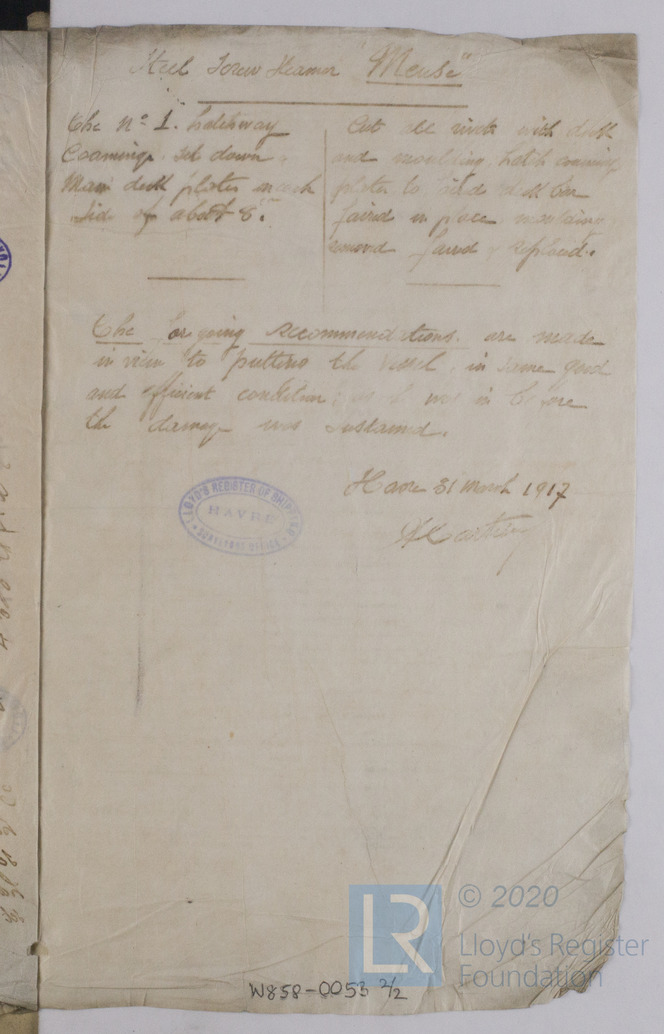 Steel Screw Steamer "Meuse"
The No 1. hatchway
Coamings. set down
Main deck plates in each
side of about 8".
Cut all rivets with deck
and moulding, hatch coaming
plates to be
faired in place moulding
removed faired & replaced.
The foregoing recommendations. are made
in view to putting the vessel, in same good
and efficient condition as it was in before
the damage was sustained.
Havre 31 March 1917
LLOYD'S REGISTER OF SHIPPING
HAVRE
SURVEYORS OFFICE
LR
© 2020
Lloyd's Register
Foundation
W858-0053 2/2